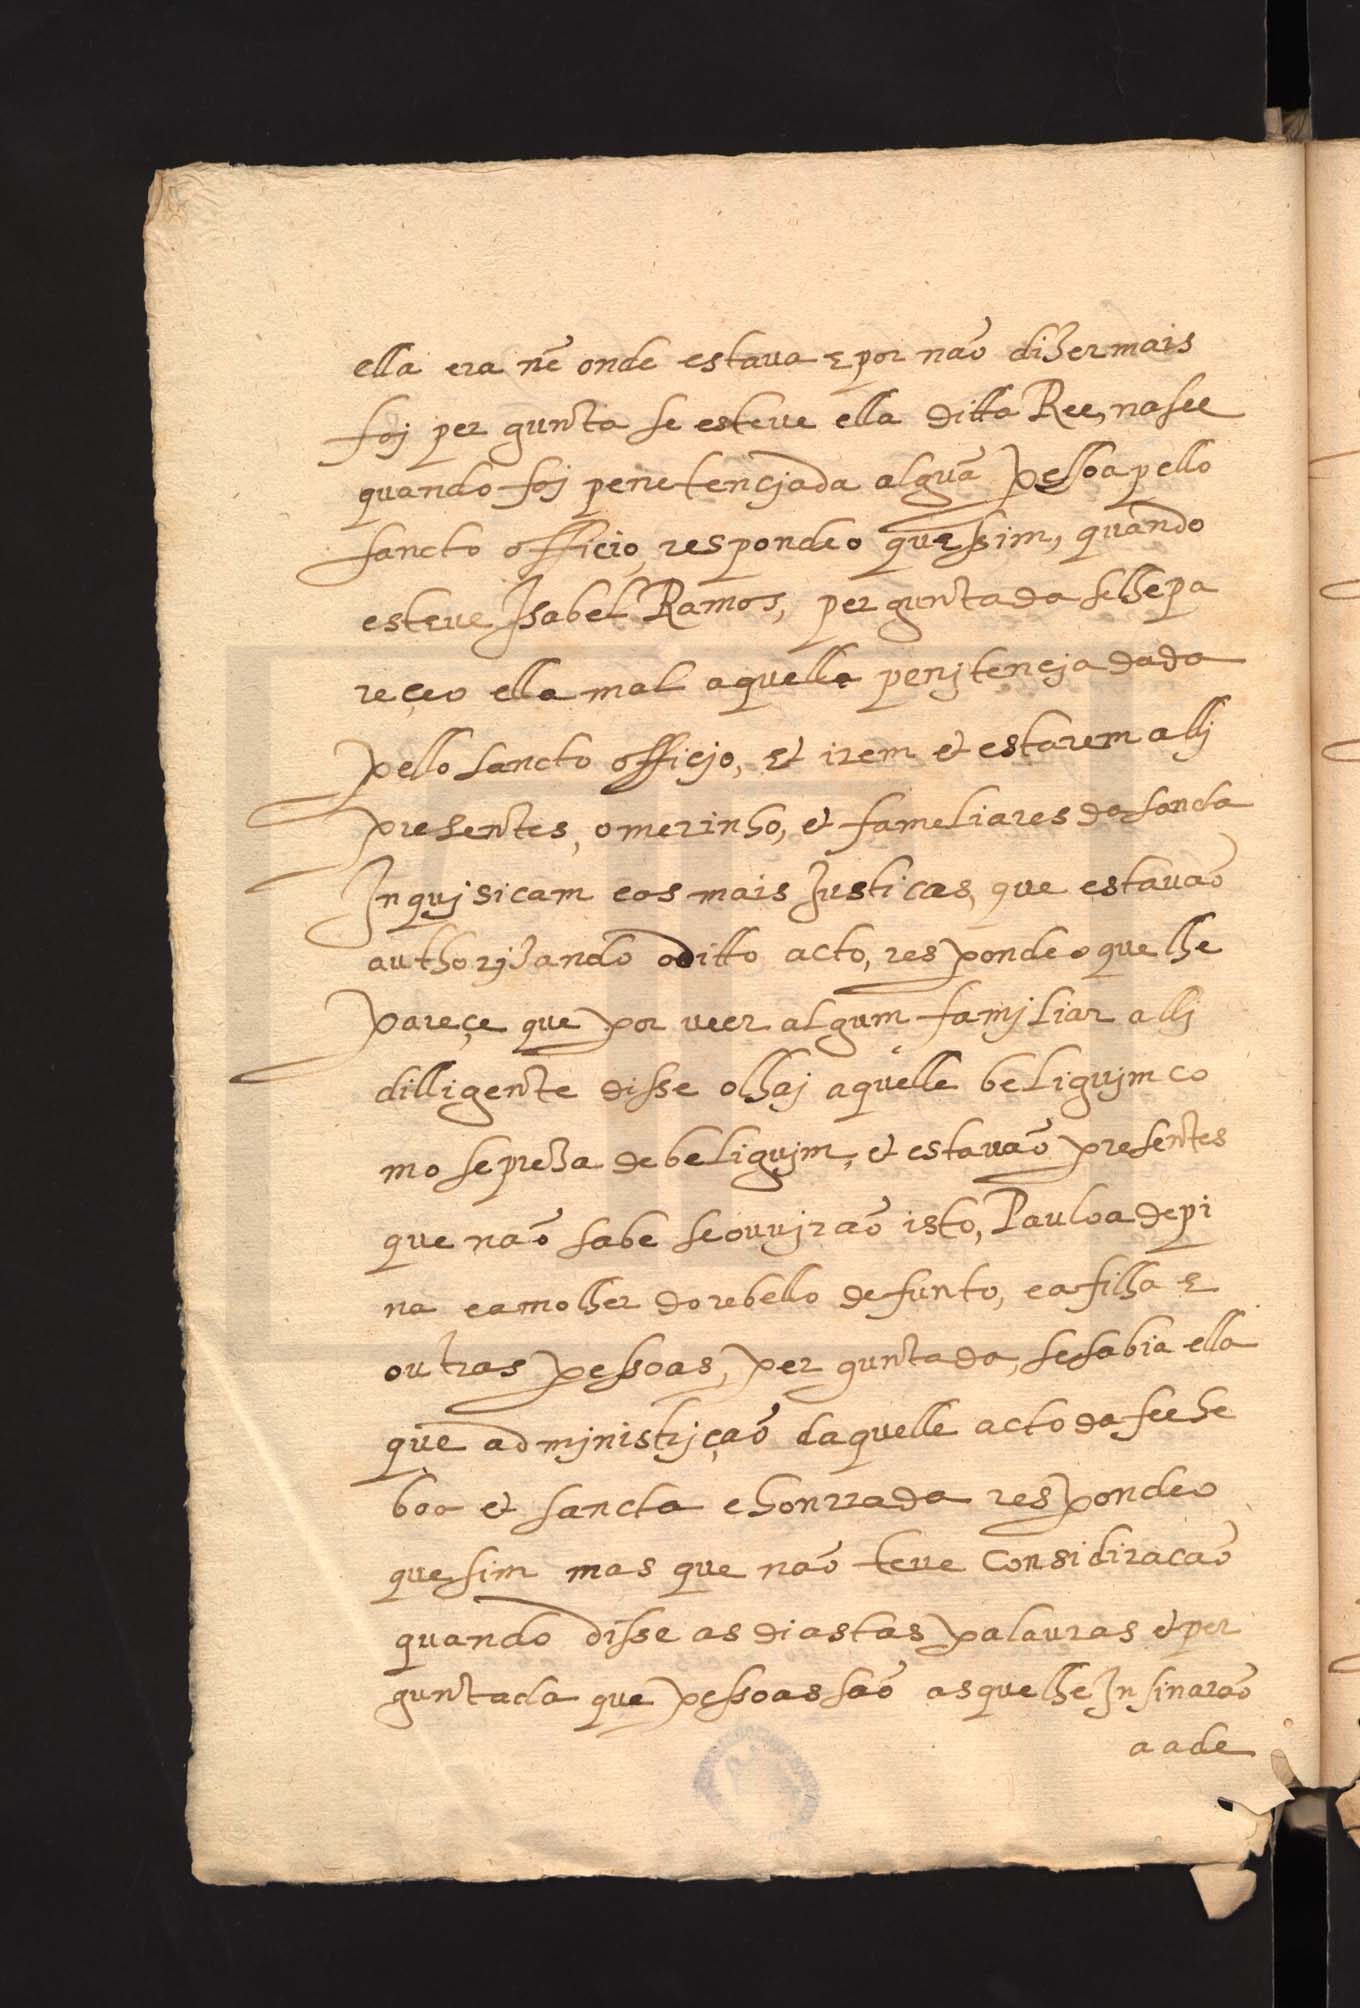 ella era nẽ onde estaua e por não dizer mais
foj per gunta se esteue ella ditta Ree, na see
quando foj penetencjada algũa pessoa pello
sancto officio, respondeo que sim, quando
esteue Isabel Ramos, per guntada se lhe pa
reçeo ella mal aquella penjtencja dada
pello sancto officjo, et irem et estarem allj
presentes, o merinho, et fameliares da sancta
Inqujsicam e os mais Justicas, que estauaõ
authorjzando o ditto acto, respondeo que lhe
pareçe que por ueer algum famjliar allj
dilligente disse olhaj aquelle beligujm co
mo se preza de beligujm, et estauaõ presentes
que naõ sabe se ouujraõ isto, Paula de pi
na e a molher do rebello defunto, e a filha e
outras pessoas, per guntada, se sabia ella
que admjnistrjçaõ daquelle acto da fee he
boa et sancta e honrrada respondeo
que sim mas que naõ teue considiracaõ
quando disse as diastas palauras et per
guntada que pessoas saõ as que lhe Insinaraõ
a ade